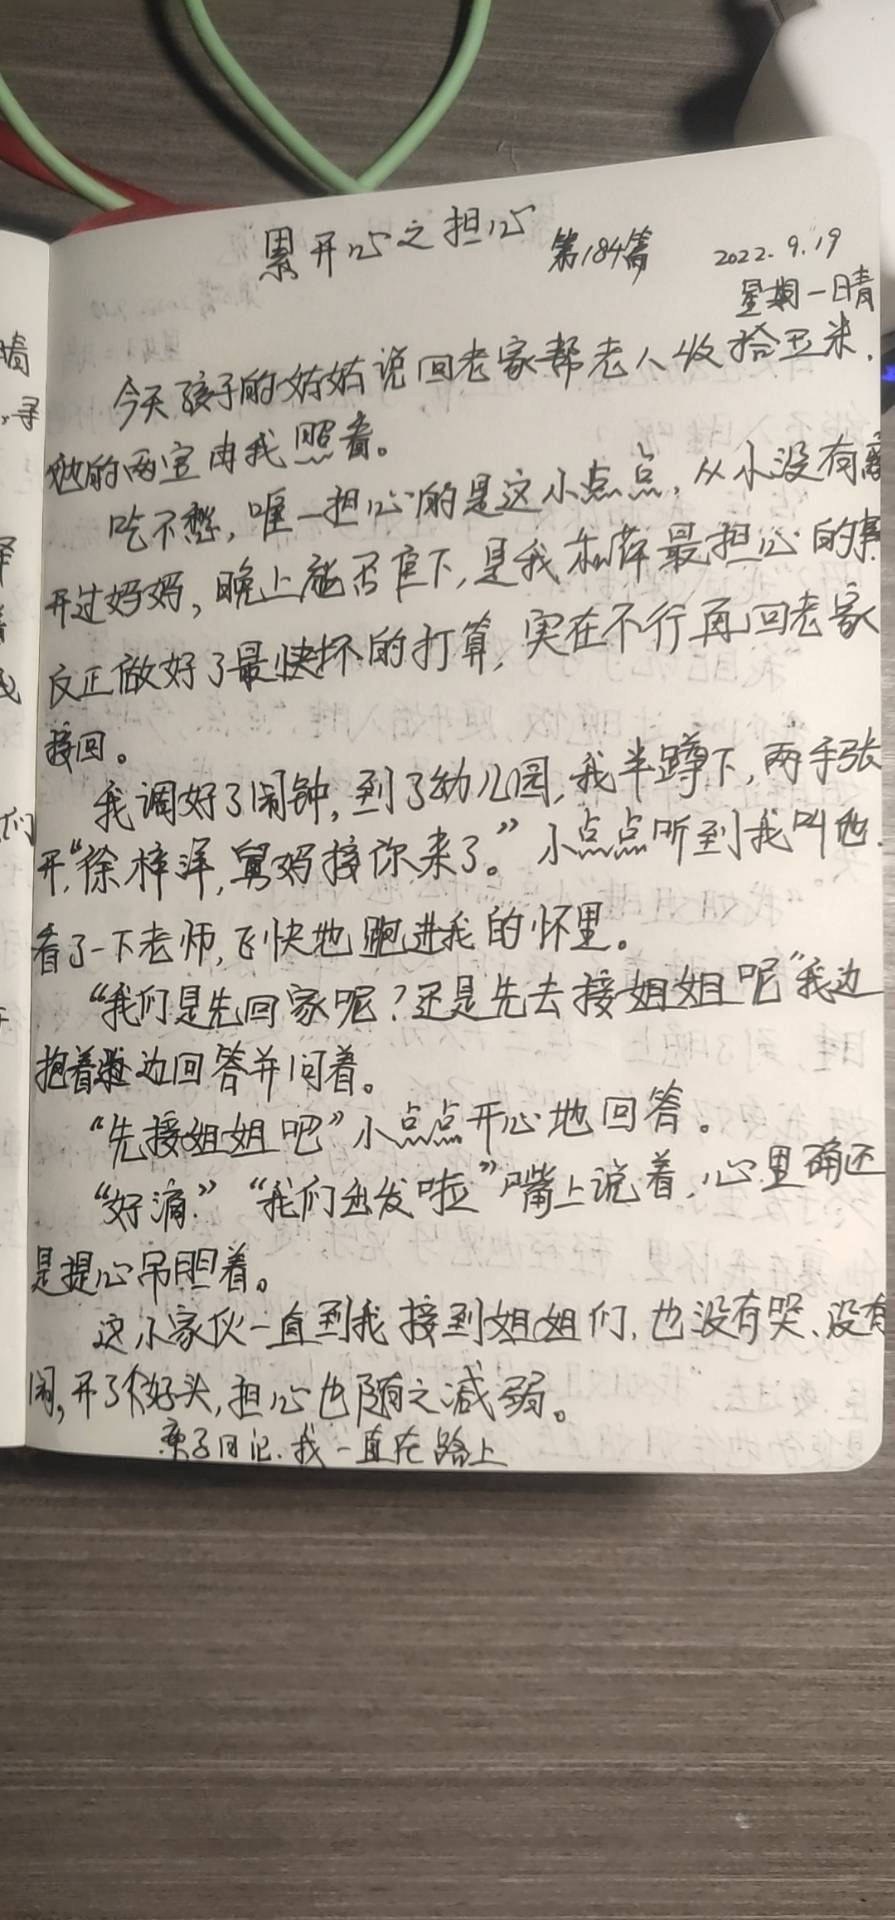 累开心之担心 第184篇 2022.9.19
星期一晴
今天孩子的姑姑说回老家帮老人收拾玉米,
她的两宝由我照看。
吃不愁,唯一担心的是这小点点,从小没有离
开过妈妈,晚上能否住下,是我和萍最担心的事
反正做好了最快坏的打算,实在不行再回老家
接回。
我调好了闹钟,到了幼儿园,我半蹲下,两手张
开,“徐梓洋,舅妈接你来了。”小点点听到我叫他,
看了一下老师,飞快地跑进我的怀里。
“我们是先回家呢?还是先去接姐姐呢”我边
抱着边回答并问着。
“先接姐姐吧”小点点开心地回答。
“好滴”“我们出发啦”嘴上说着,心里确还
是提心吊胆着。
这小家伙一直到我接到姐姐们,也没有哭、没有
闹,开了个好头,担心也随之减弱。
亲子日记.我一直在路上
晴
,寻
着
我
们